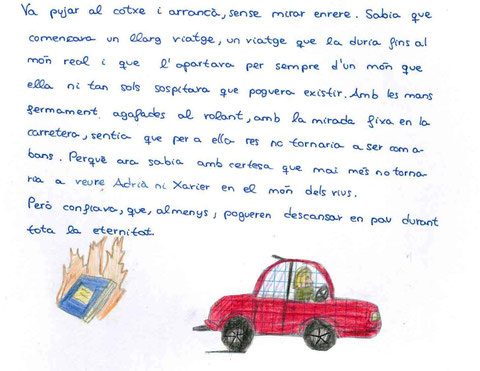 Va pujar al cotxe i arrancà, sense mirar enrere. Sabia que
començava un llarg viatge, un viatge que la duria fins al
món real i que l'apartava per sempre d'un món que
ella ni tan sols sospitava que poguera existir. Amb les mans
fermament agafades al volant, amb la mirada fixa en la
carretera, sentia que per a ella res no tornaria a ser com a
bans. Perquè ara sabia amb certesa que mai més no torna-
ria a veure Adrià ni Xavier en el món dels vius.
Però confiava, que, almenys, pogueren descansar en pau durant
tota la eternitat.